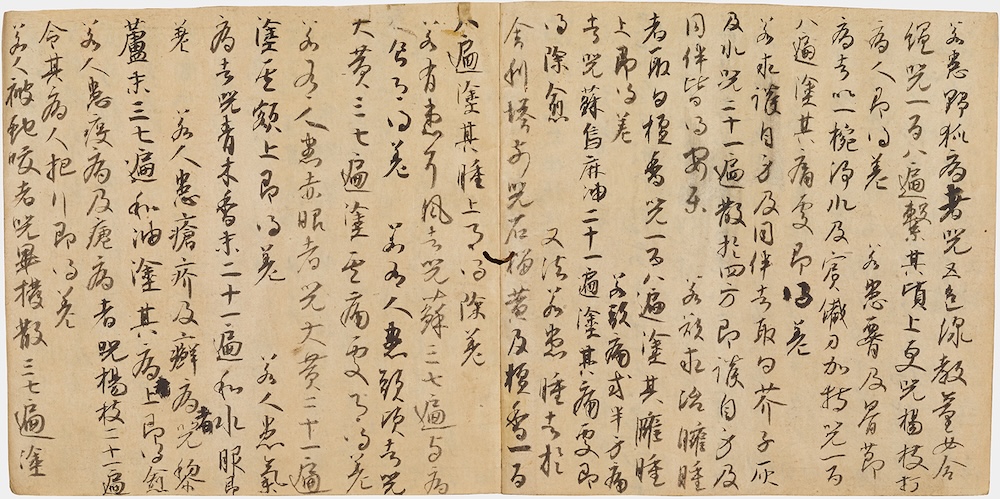 若患野狐病者咒五色線教童女合
繩咒一百八遍繫其頂上更咒楊枝打
病人即得差　　若患脣及骨節
病者以一椀淨水及賓鐵刀加持咒一百
八遍塗其痛處即得差
若求護自身及同伴者取白芥子灰
及水咒二十一遍散於四方即護自身及
同伴皆得安樂　　若欲求治癰腫
者取白檀香咒一百八遍塗其癰腫
上即得差　　若頭痛或半身痛
者咒蘇烏麻油二十一遍塗其痛處即
得除愈　　又法若患腫者於
舍利塔前咒石榴黃及檀香一百
八遍塗其腫上即得除差
若有患行風者咒蘇三七遍与病
人即得差　　若有人患頭項者咒
大黃三七遍塗其痛處即得差
若有人患赤眼者咒大黃二十一遍
塗其額上即得差　　若人患氣
病者咒青木香末二十一遍和水服即
差　　若人患瘡疥及癬病者咒黎
蘆末三七遍和油塗其病上即得愈
若人患疫病及瘧病者咒楊枝二十一遍
令其病人把行即得差
若人被蛇咬者咒畢撥散三七遍塗